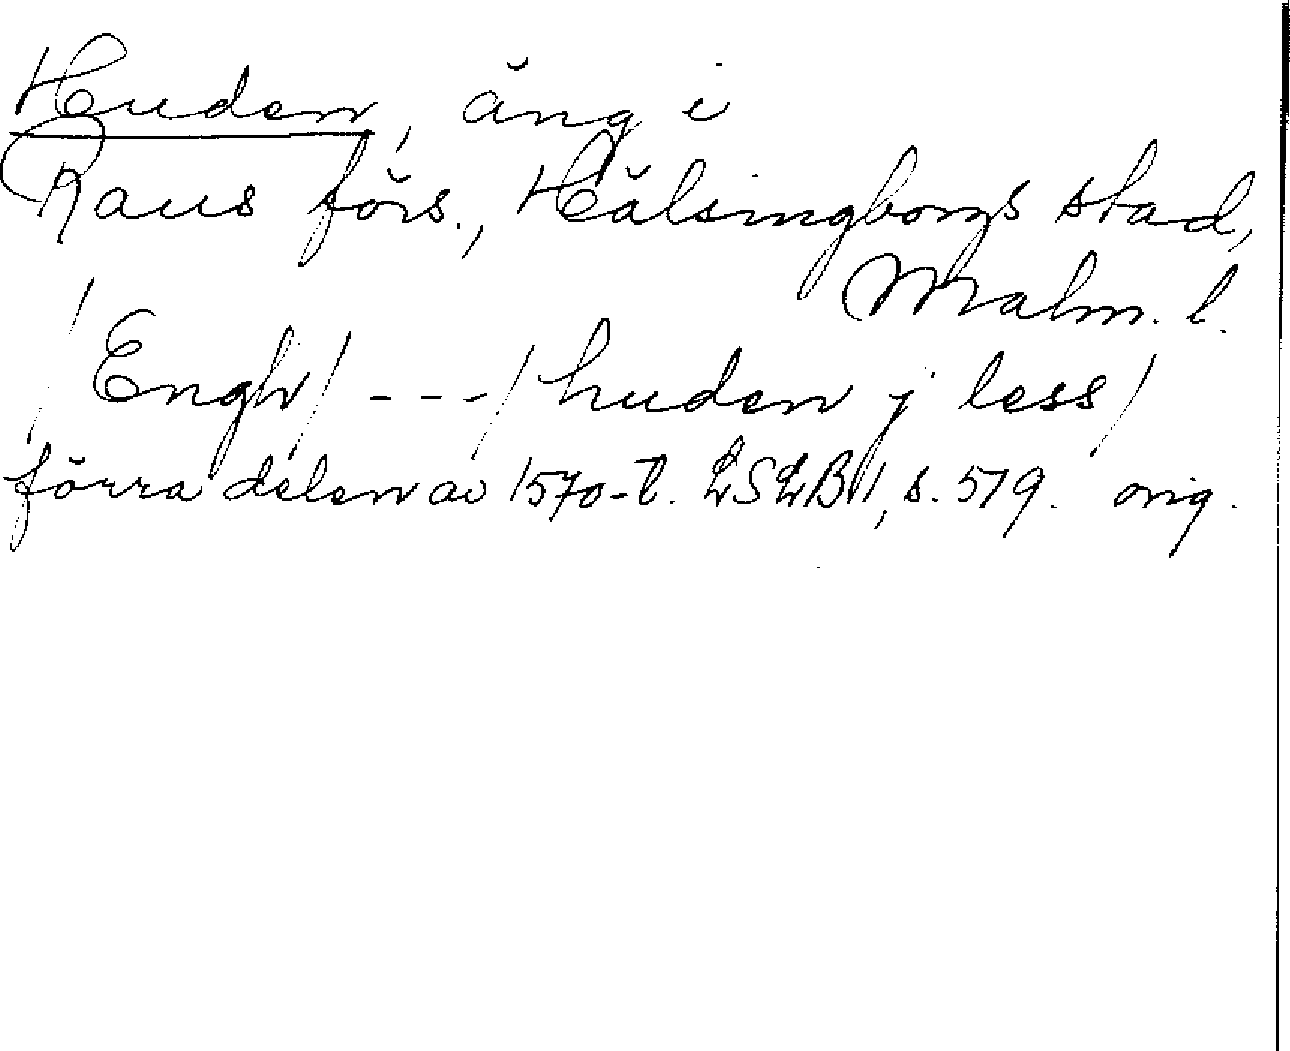 Huden, äng i
Raus förs., Hälsingborgs stad,
Malm. l.
/Engh/ - - - /huden j less/
förra delen av 1570-t. LSLB II, s. 579. orig.